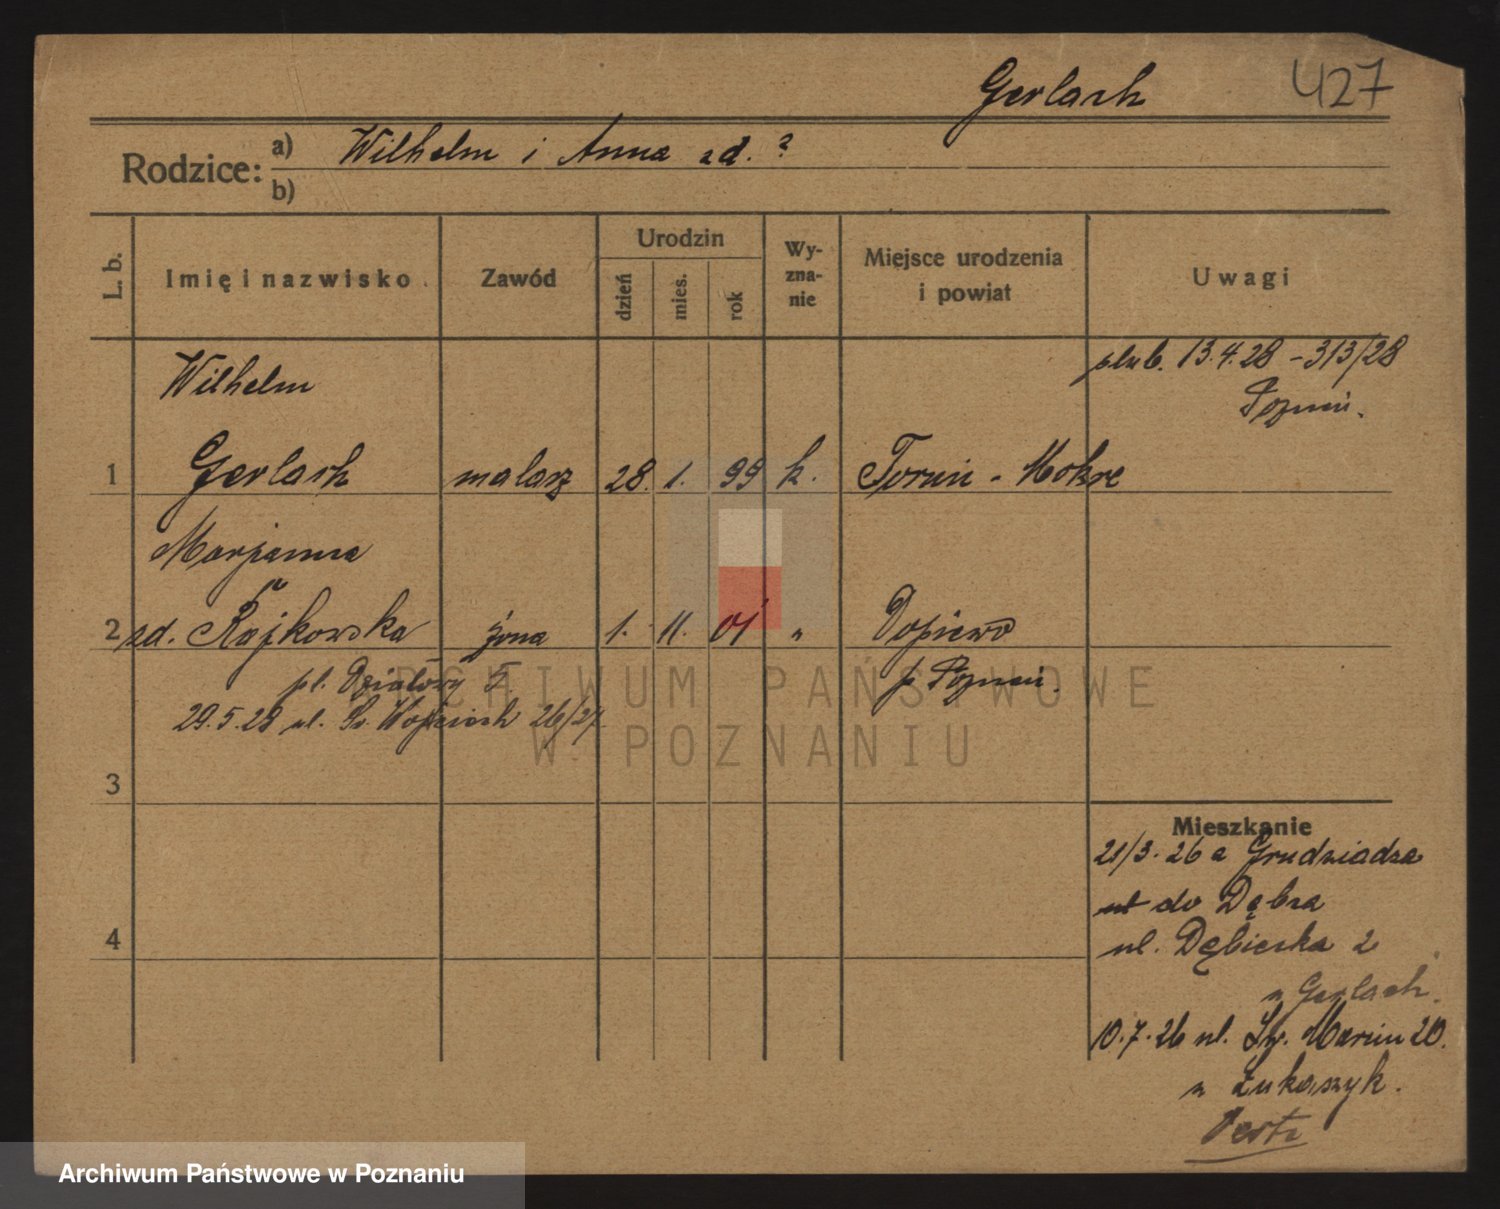 Gerlach 427
Rodzice: a) Wilhelm i Anna zd. ?
b)
L. b. Imię i nazwisko Zawód Urodzin dzień mies. rok Wyznanie Miejsce urodzenia i powiat Uwagi
ślub. 13.4.28 – 313/28
Poznań.
Wilhelm
1 Gerlach malarz 28. 1. 99 k. Toruń - Mokre
Marjanna
2 zd. Rajkowska żona 1. 11. 01 " Dopiewo
pl. Działowy 5. p Poznań.
29.5.28 ul. Św Wojciech 26/27
ARCHIWUM PAŃSTWOWE
W POZNANIU
3
4
Mieszkanie
21/3. 26 z Grudziadza
do Dębca
ul. Dębiecka 2
u Gerlach.
10.7.26 ul. Św. Marcin 20.
u Łukaszyk.
Archiwum Państwowe w Poznaniu